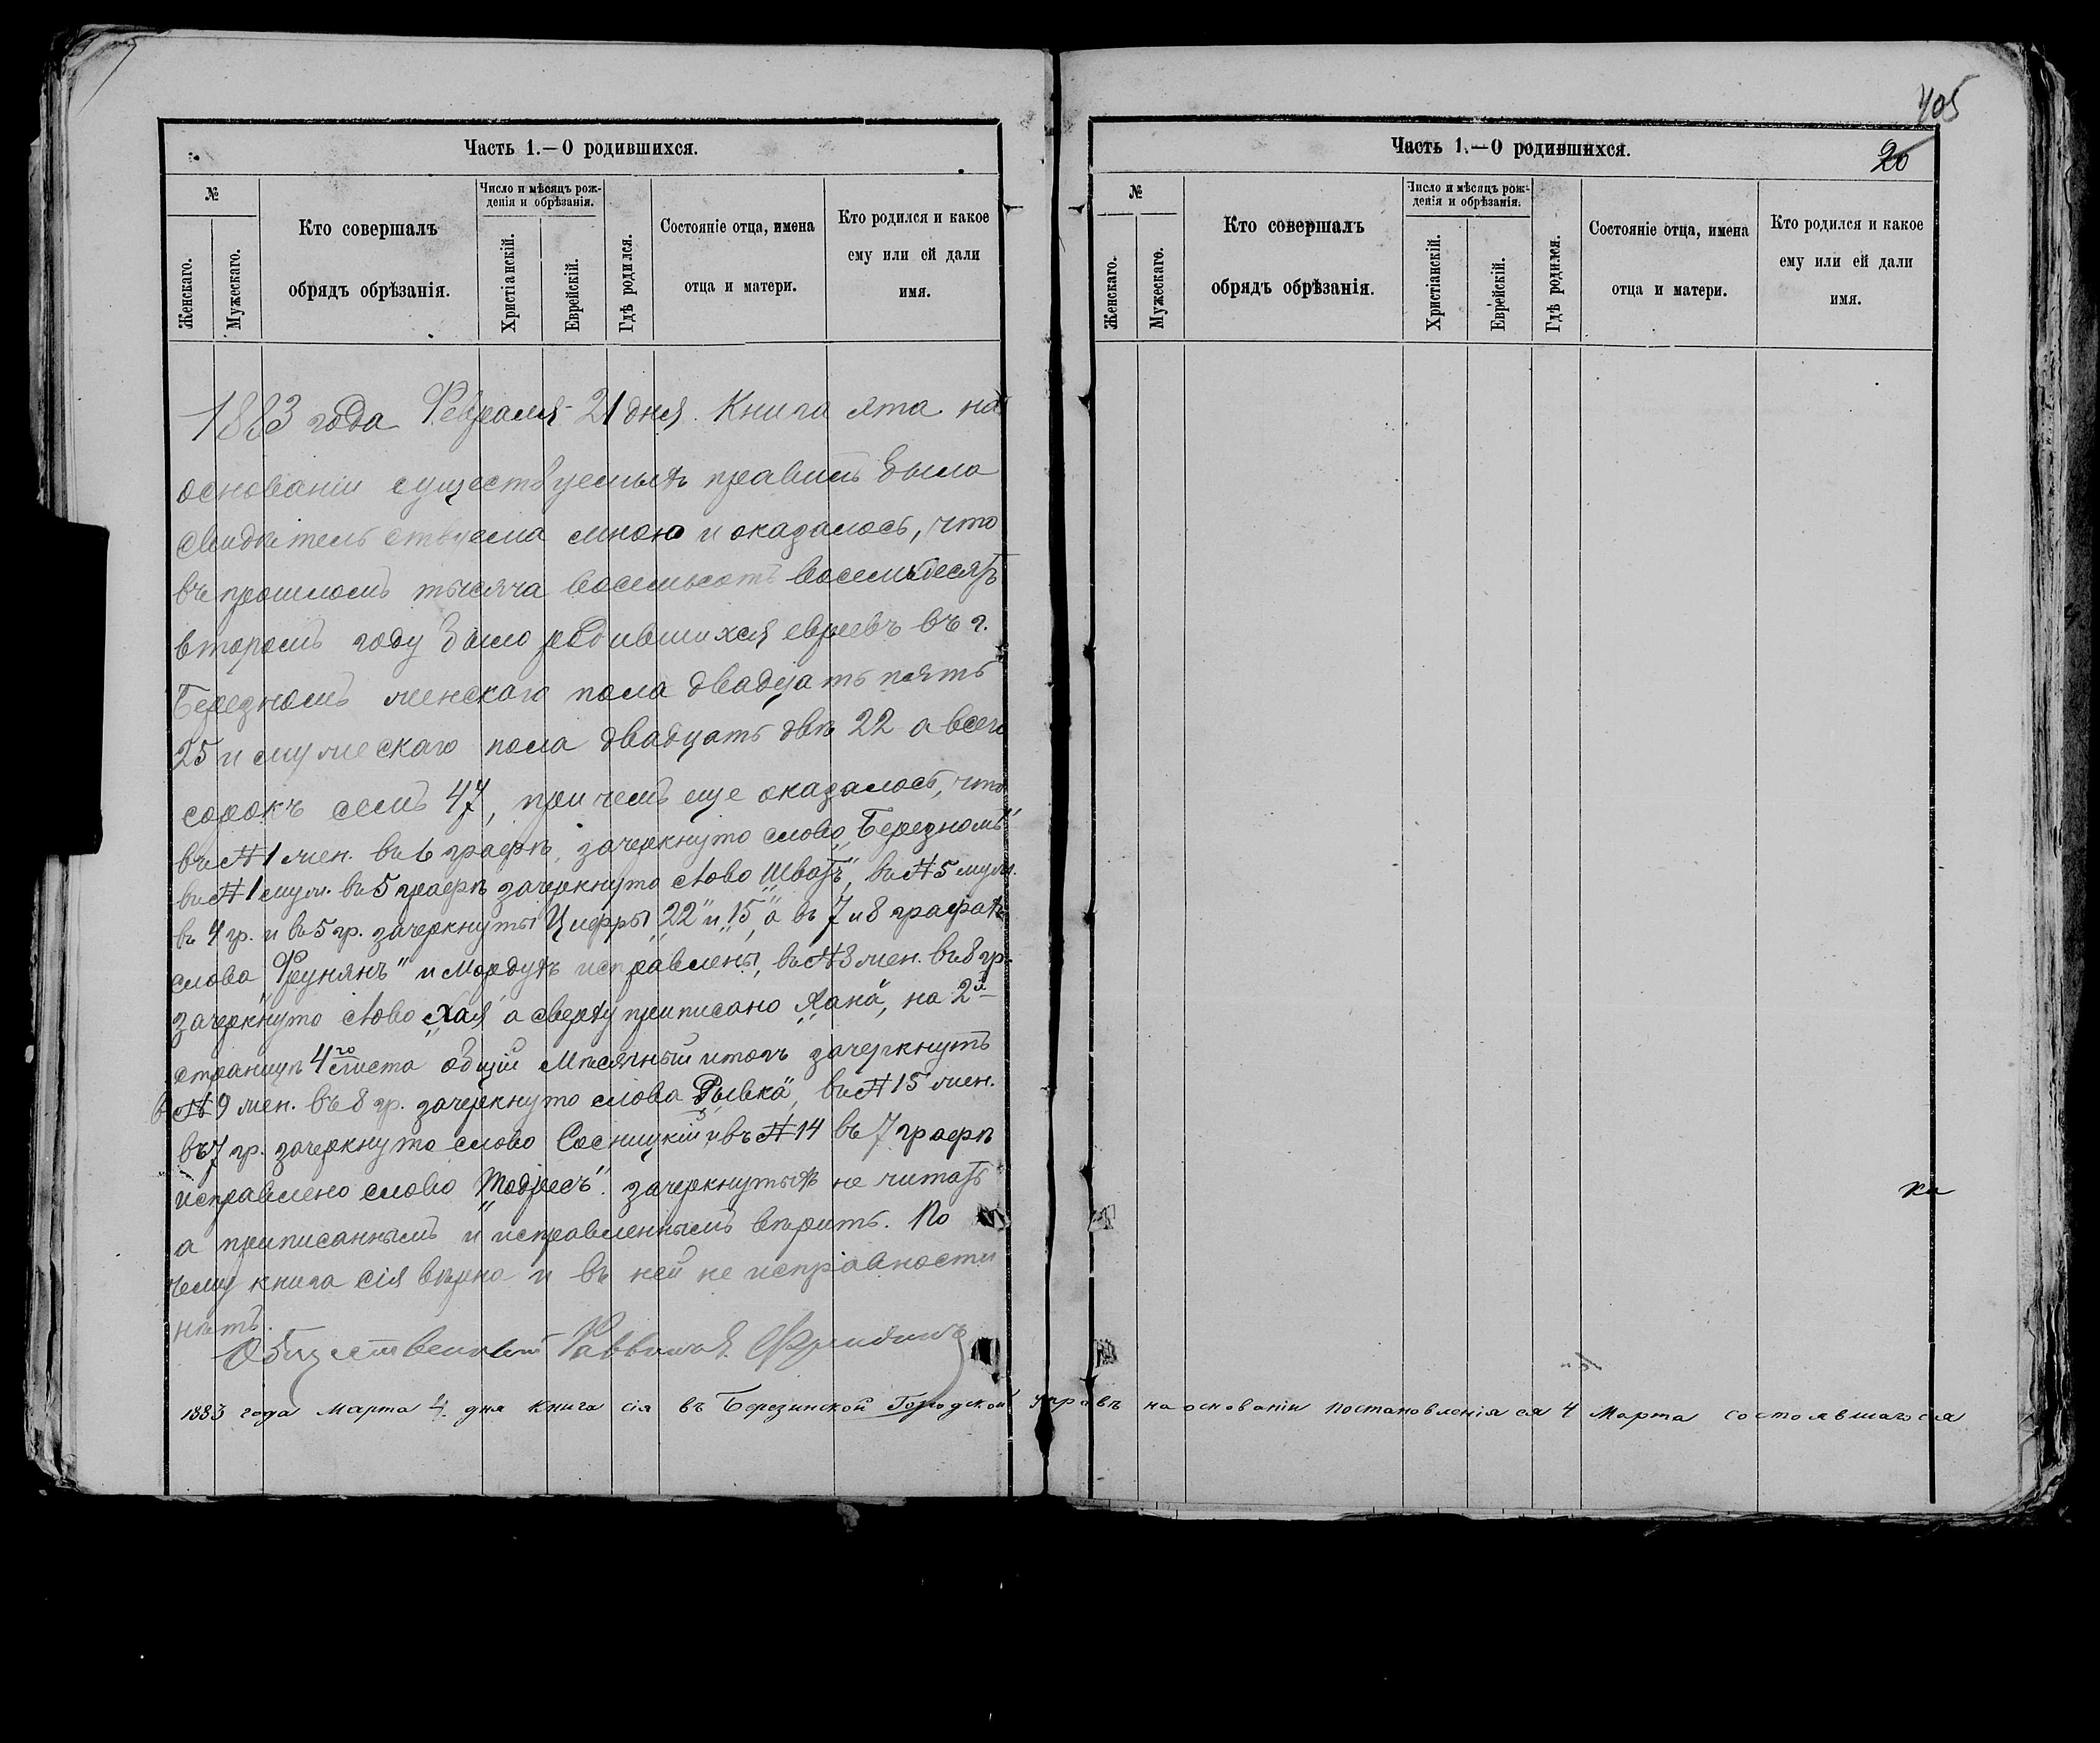 405
Часть 1.—О родившихся.
№
Женскаго.
Мужескаго.
Кто совершалъ
обрядъ обрѣзанія.
Число и мѣсяцъ рож-
денія и обрѣзанія.
Христіанскій.
Еврейскій.
Гдѣ родился.
Состояніе отца, имена
отца и матери.
Кто родился и какое
ему или ей дали
имя.
1883 года Февраля 21 дня. Книга эта на
основаніи существуемыхъ правилъ была
свидѣтельствуема мною и оказалось, что
въ прошломъ тысяча восемьсотъ восемьдесятъ
второмъ году было родившихся евреевъ въ г.
Березномъ женскаго пола двадцать пять
25 и мужескаго пола двадцать двѣ 22 а всего
сорокъ семь 47, при чемъ еще оказалось, что
въ № 1 жен. въ 6 графѣ, зачеркнуто слово „Березномъ“
въ № 1 муж. въ 5 графѣ зачеркнуто слово „Шватъ“, въ № 5 муж.
въ 4 гр. и въ 5 гр. зачеркнуты Цифры „22“ и „15“, а въ 7 и 8 графахъ
слова „Фрунянъ“ и Мордухъ исправлены, въ № 8 жен. въ 8 гр.
зачеркнуто слово „Хая“ а сверху приписано „Хана“, на 2й
страницѣ 4го листа общій Мѣсячный итогъ зачеркнутъ
в № 9 жен. въ 8 гр. зачеркнуто слова „Рывка“, въ № 15 жен.
въ 7 гр. зачеркнуто слово Сосницкій и въ № 14 въ 7 графѣ
исправлено слово „Тодресъ“. зачеркнутыхъ не читать
а приписаннымъ и исправленнымъ вѣрить. По
чему книга сія вѣрна и въ ней не исправности
нѣтъ.
Общественный Раввинъ Я. Фридинъ
Часть 1.—О родившихся.
20
№
Женскаго.
Мужескаго.
Кто совершалъ
обрядъ обрѣзанія.
Число и мѣсяцъ рож-
денія и обрѣзанія.
Христіанскій.
Еврейскій.
Гдѣ родился.
Состояніе отца, имена
отца и матери.
Кто родился и какое
ему или ей дали
имя.
1883 года марта 4 дня книга сія въ Березинской Городской управѣ на основаніи постановленія ея 4 Марта состоявшагося